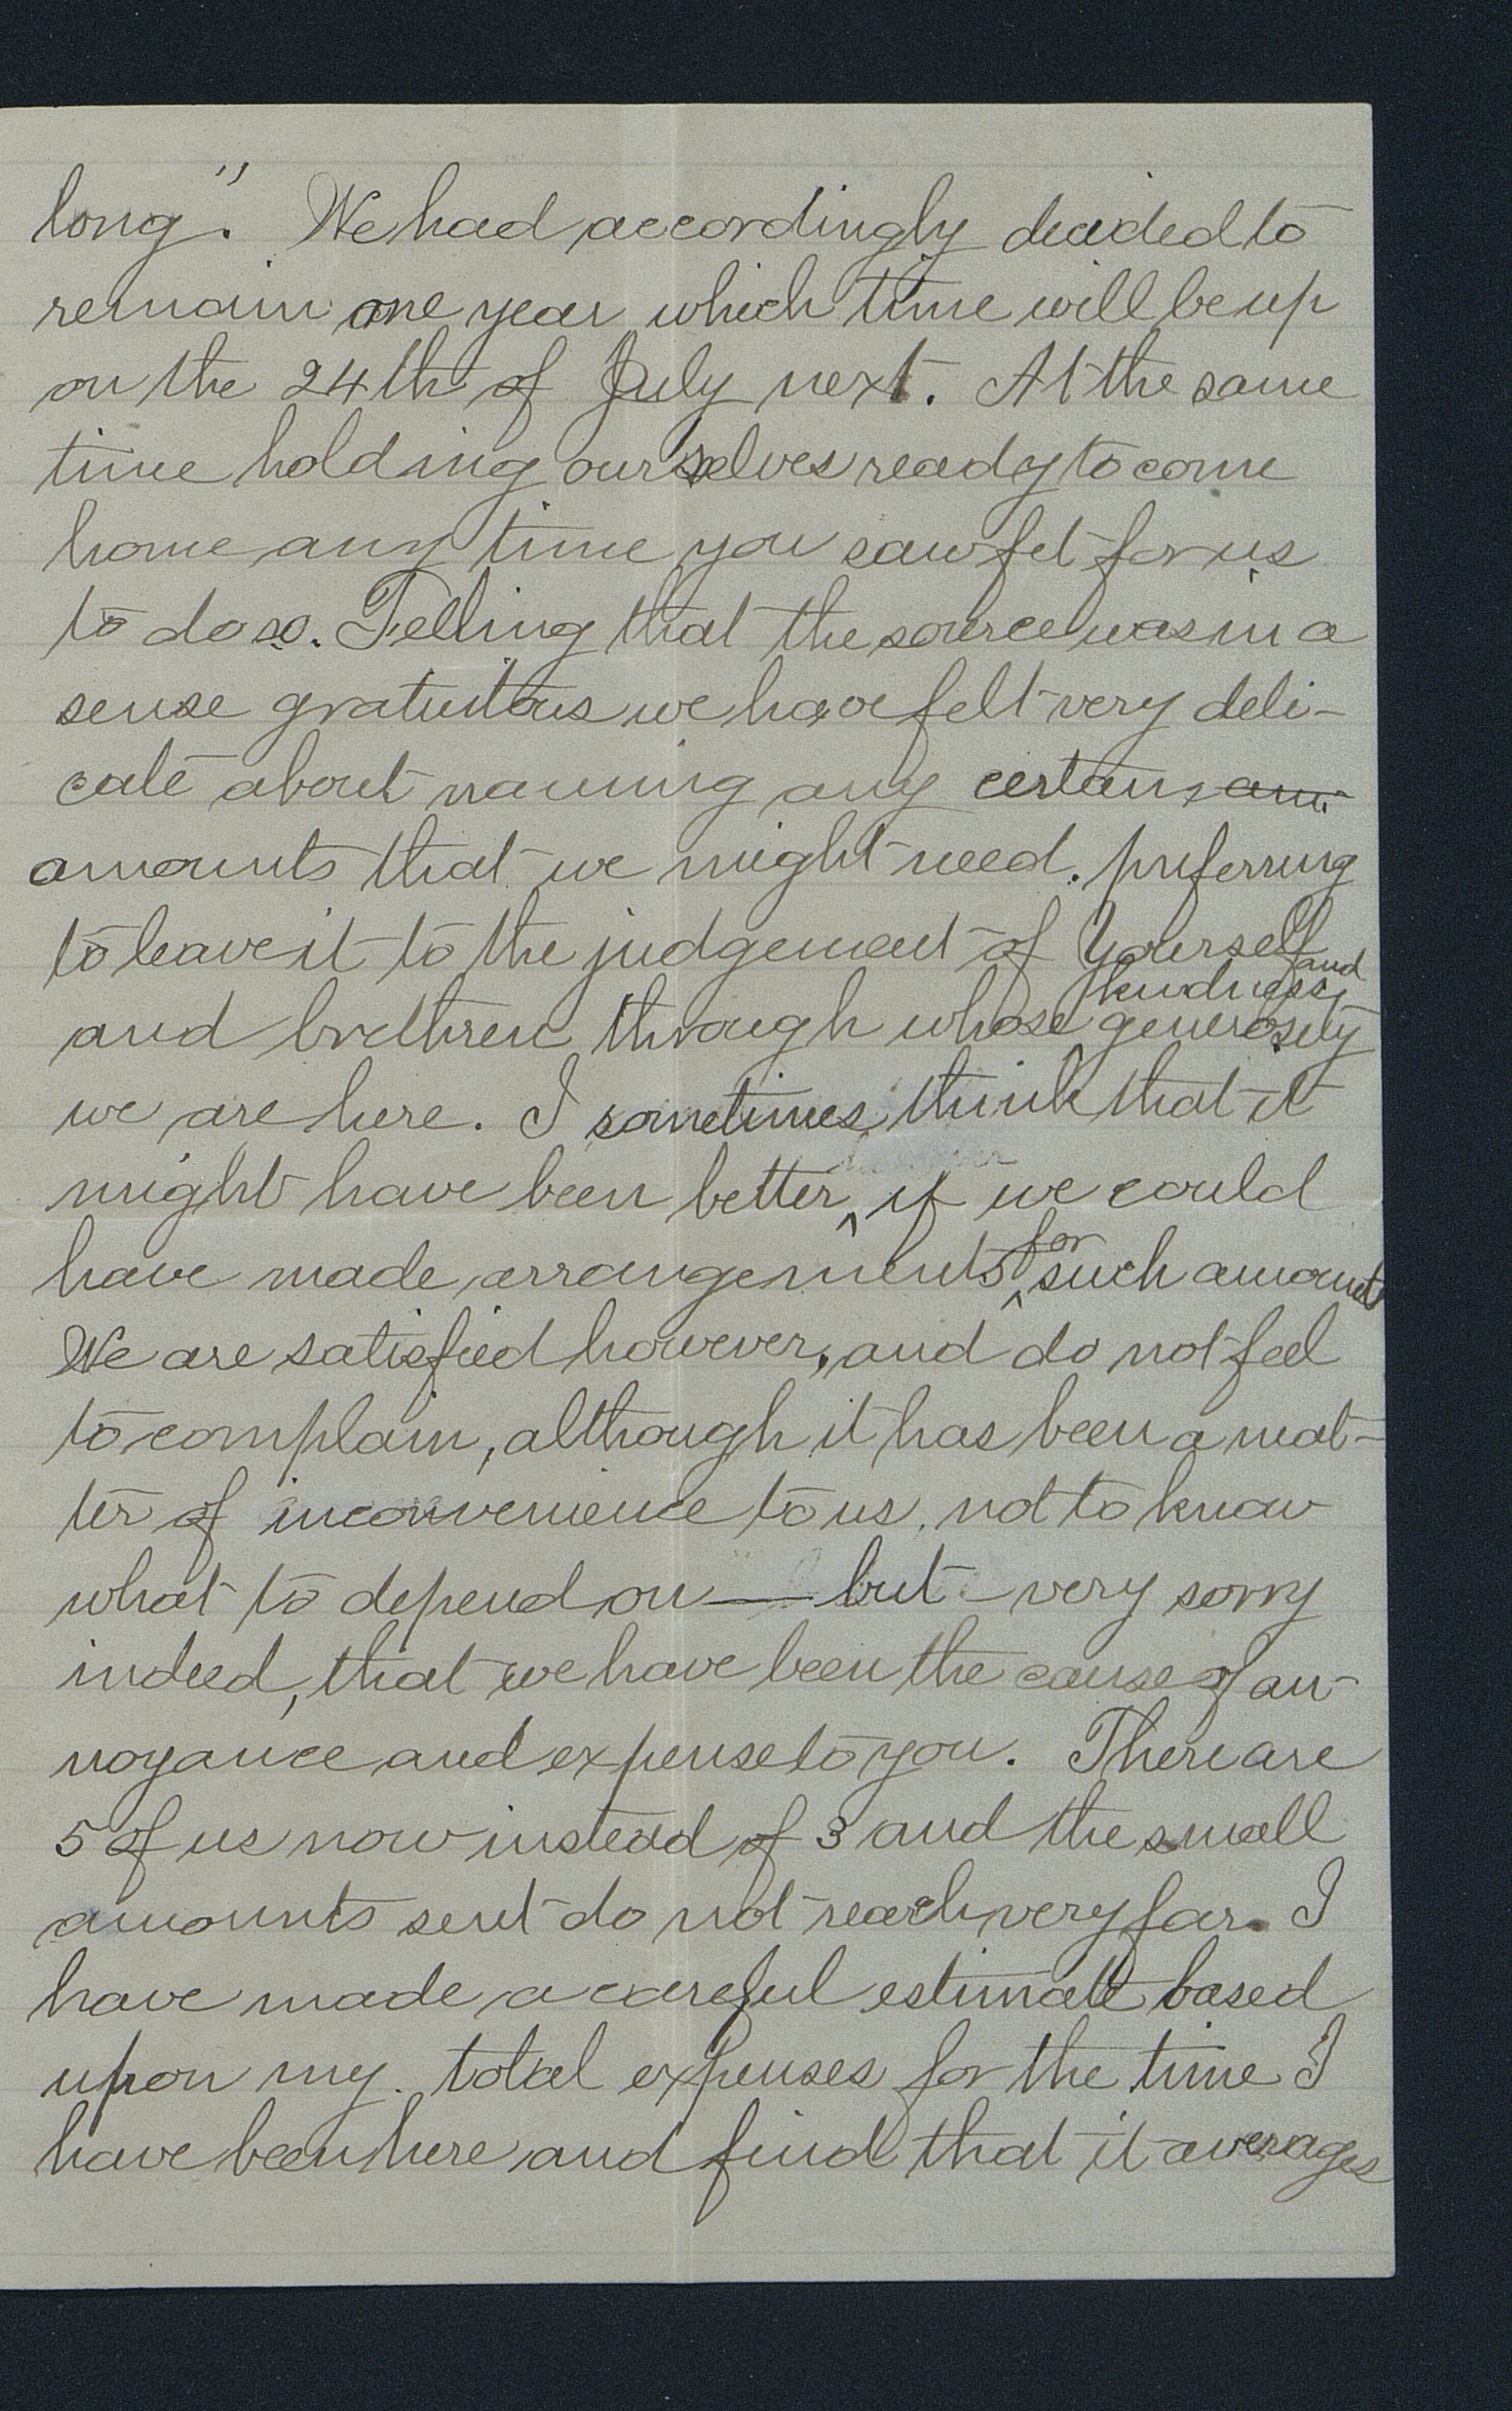 long". We had accordingly decided to
remain one year which time will be up
on the 24th of July next. At the same
time holding ourselves ready to come
home any time you saw fit for us
to do so. Felling that the source was in a
sense gratuitous we have felt very deli-
cate about naming any certain am.
amounts that we might need. preferring
to leave it to the judgement of Yourself
and brethren through whose kindness and generosity
we are here. I sometimes think that it
might have been better, if we could
have made arrangements for such amounts
We are satisfied however, and do not feel
to complain, although it has been a mat-
ter of inconvenience to us, not to know
what to depend on — but very sorry
indeed, that we have been the cause of an-
noyance and expense to you. There are
5 of us now instead of 3 and the small
amounts sent do not reach very far. I
have made a careful estimate based
upon my total expenses for the time I
have been here and find that it averages